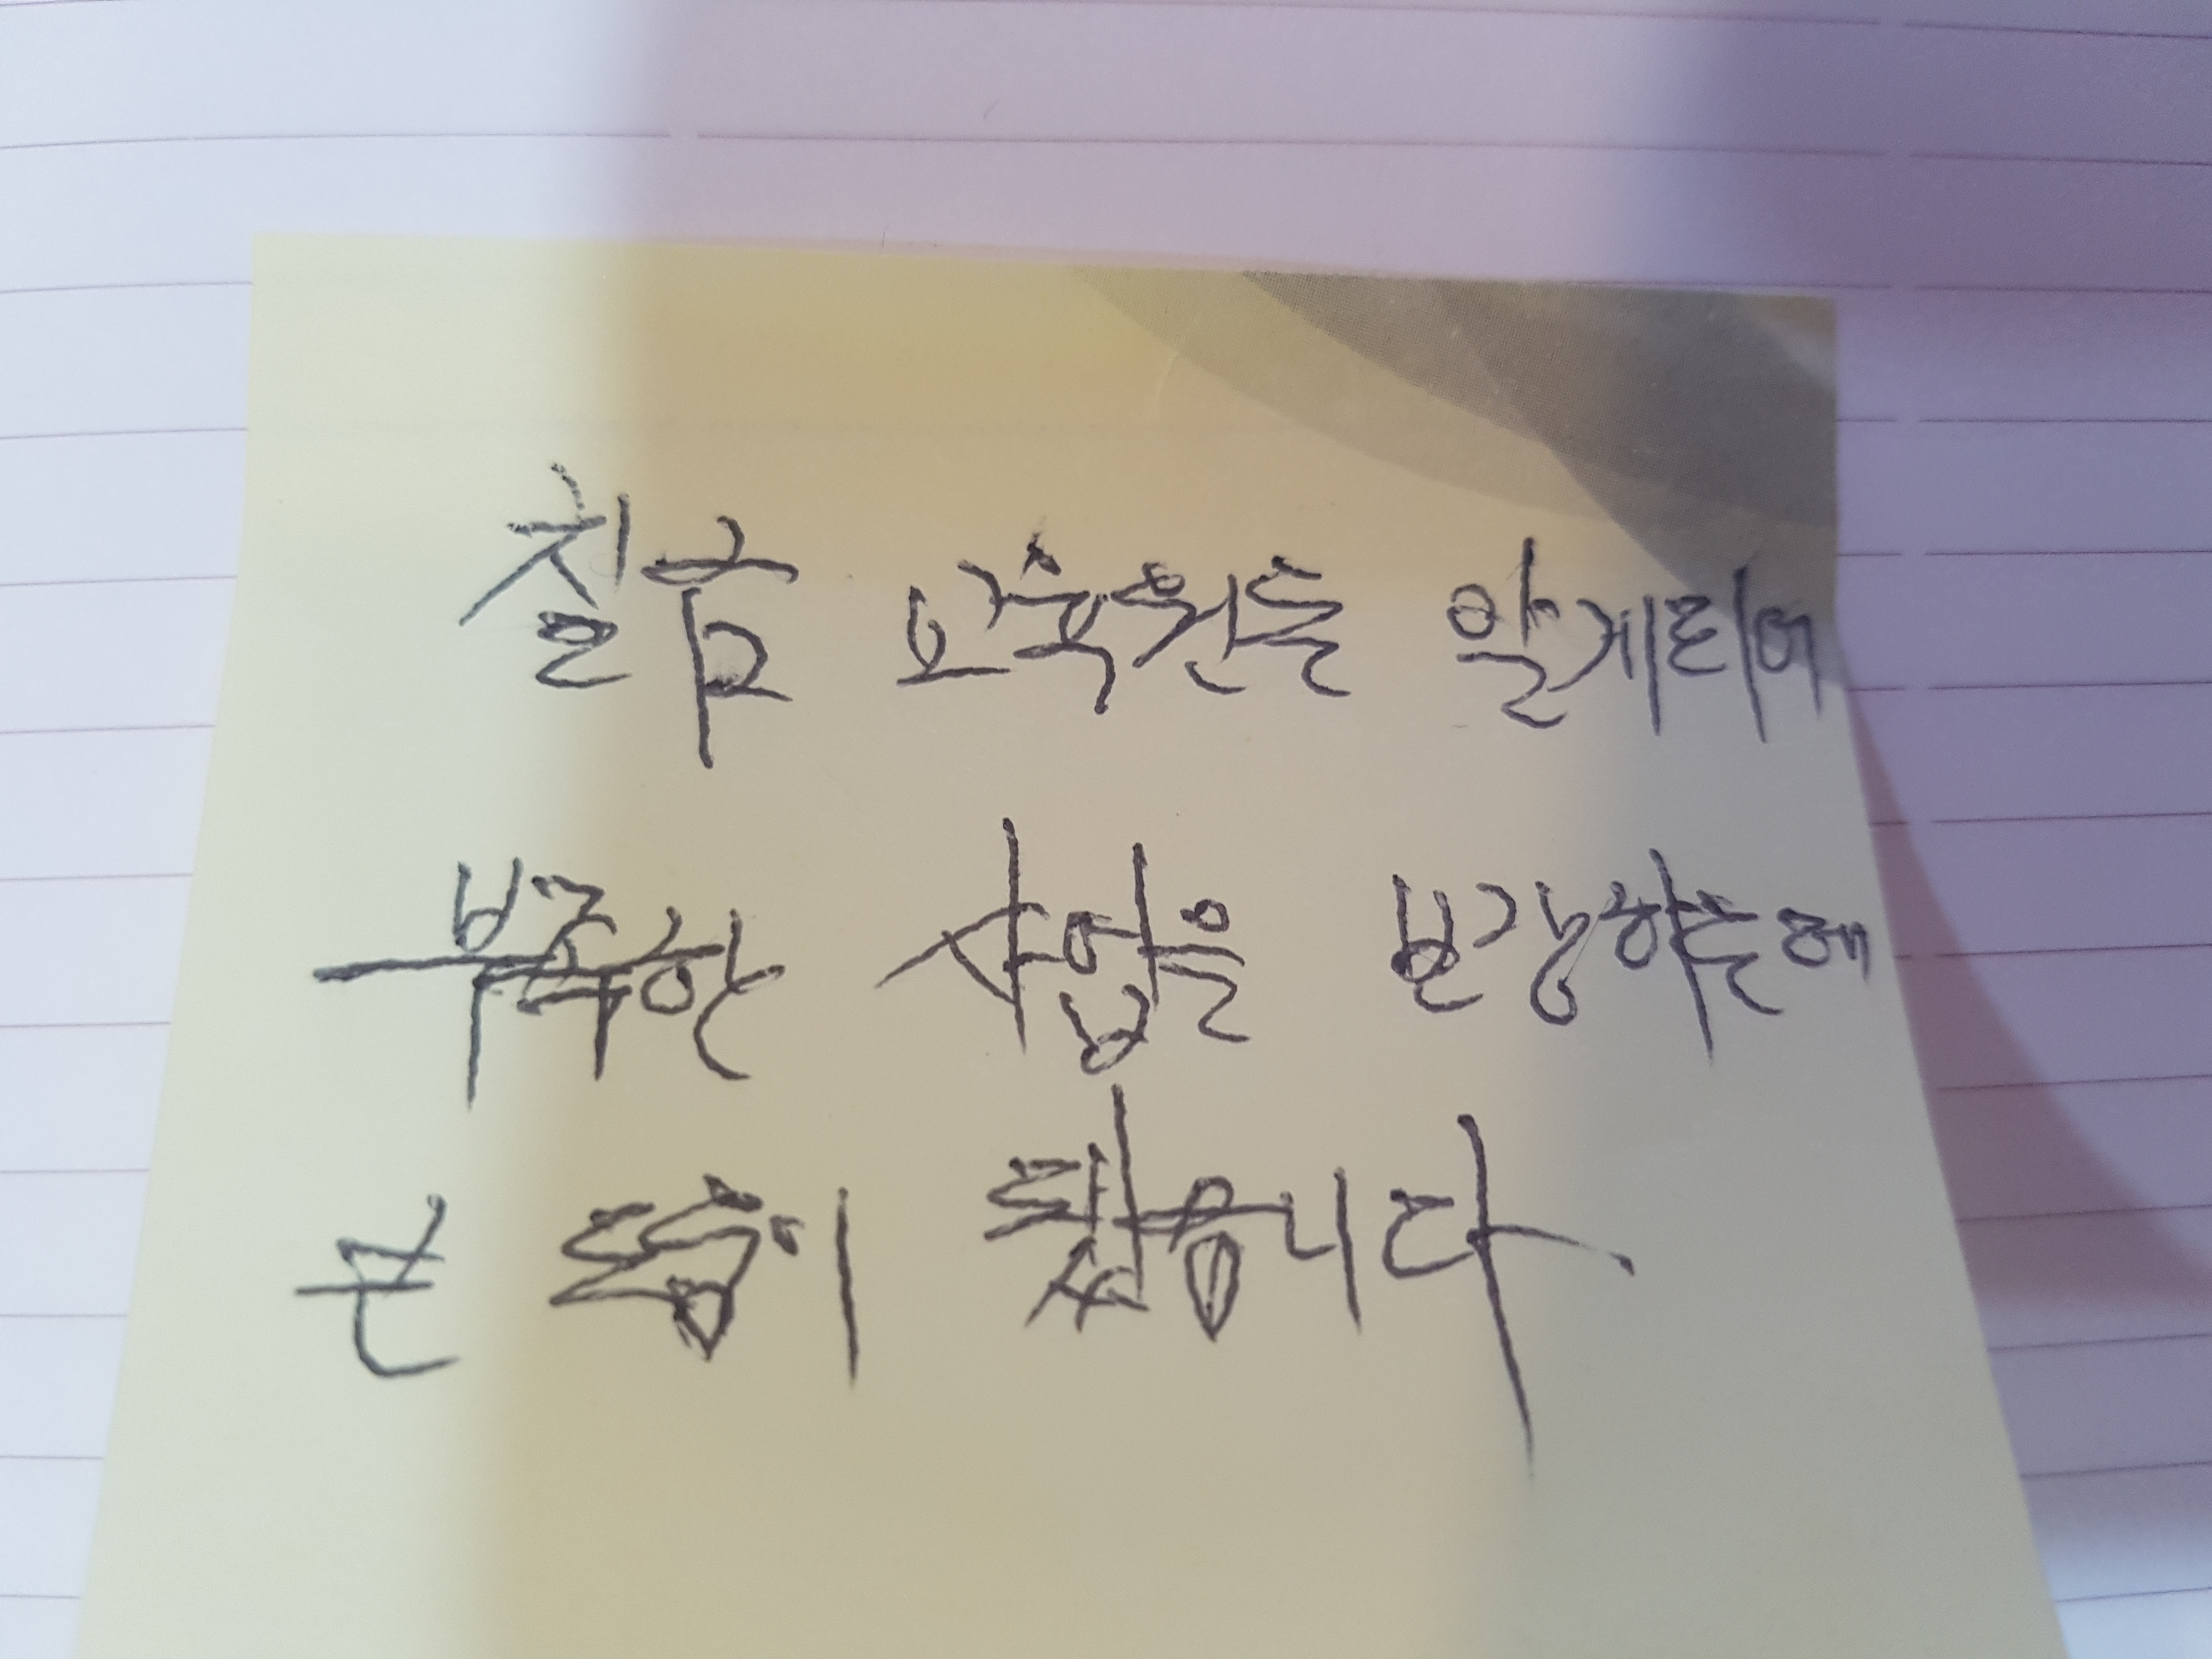 칠곡 교육원을 알게되어
부족한 사업을 보강하는데
큰 도움이 됐습니다.